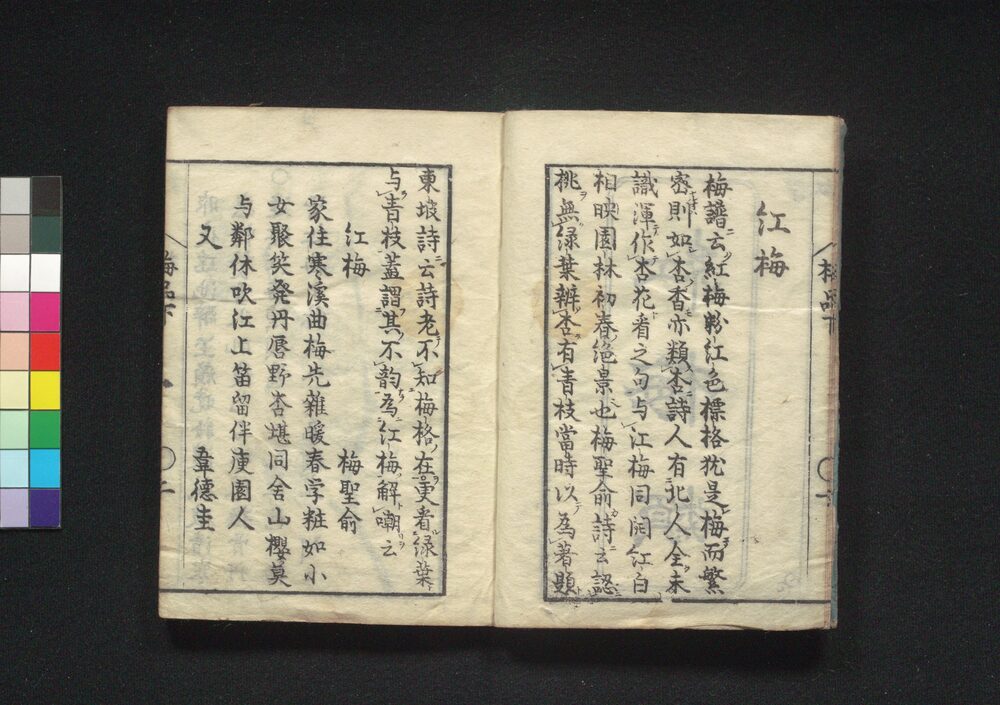 江梅
梅譜云紅梅粉江色標格犹是梅而繁
密則如杏香亦類杏詩人有北人全未
識渾作杏花看之句与江梅同開红白
相映園林初春絶景也梅聖俞詩云認
桃無绿葉辨杏有青枝當時以為著題
東坡詩云詩老不知梅格在更看绿葉
与青枝蓋謂其不韵為江梅解嘲云
江梅 梅聖俞
家住寒溪曲梅先雜暖春学粧如小
女聚笑発丹唇野杏堪同舍山櫻莫
与鄰休吹江上笛留伴庾園人
又 韋德圭